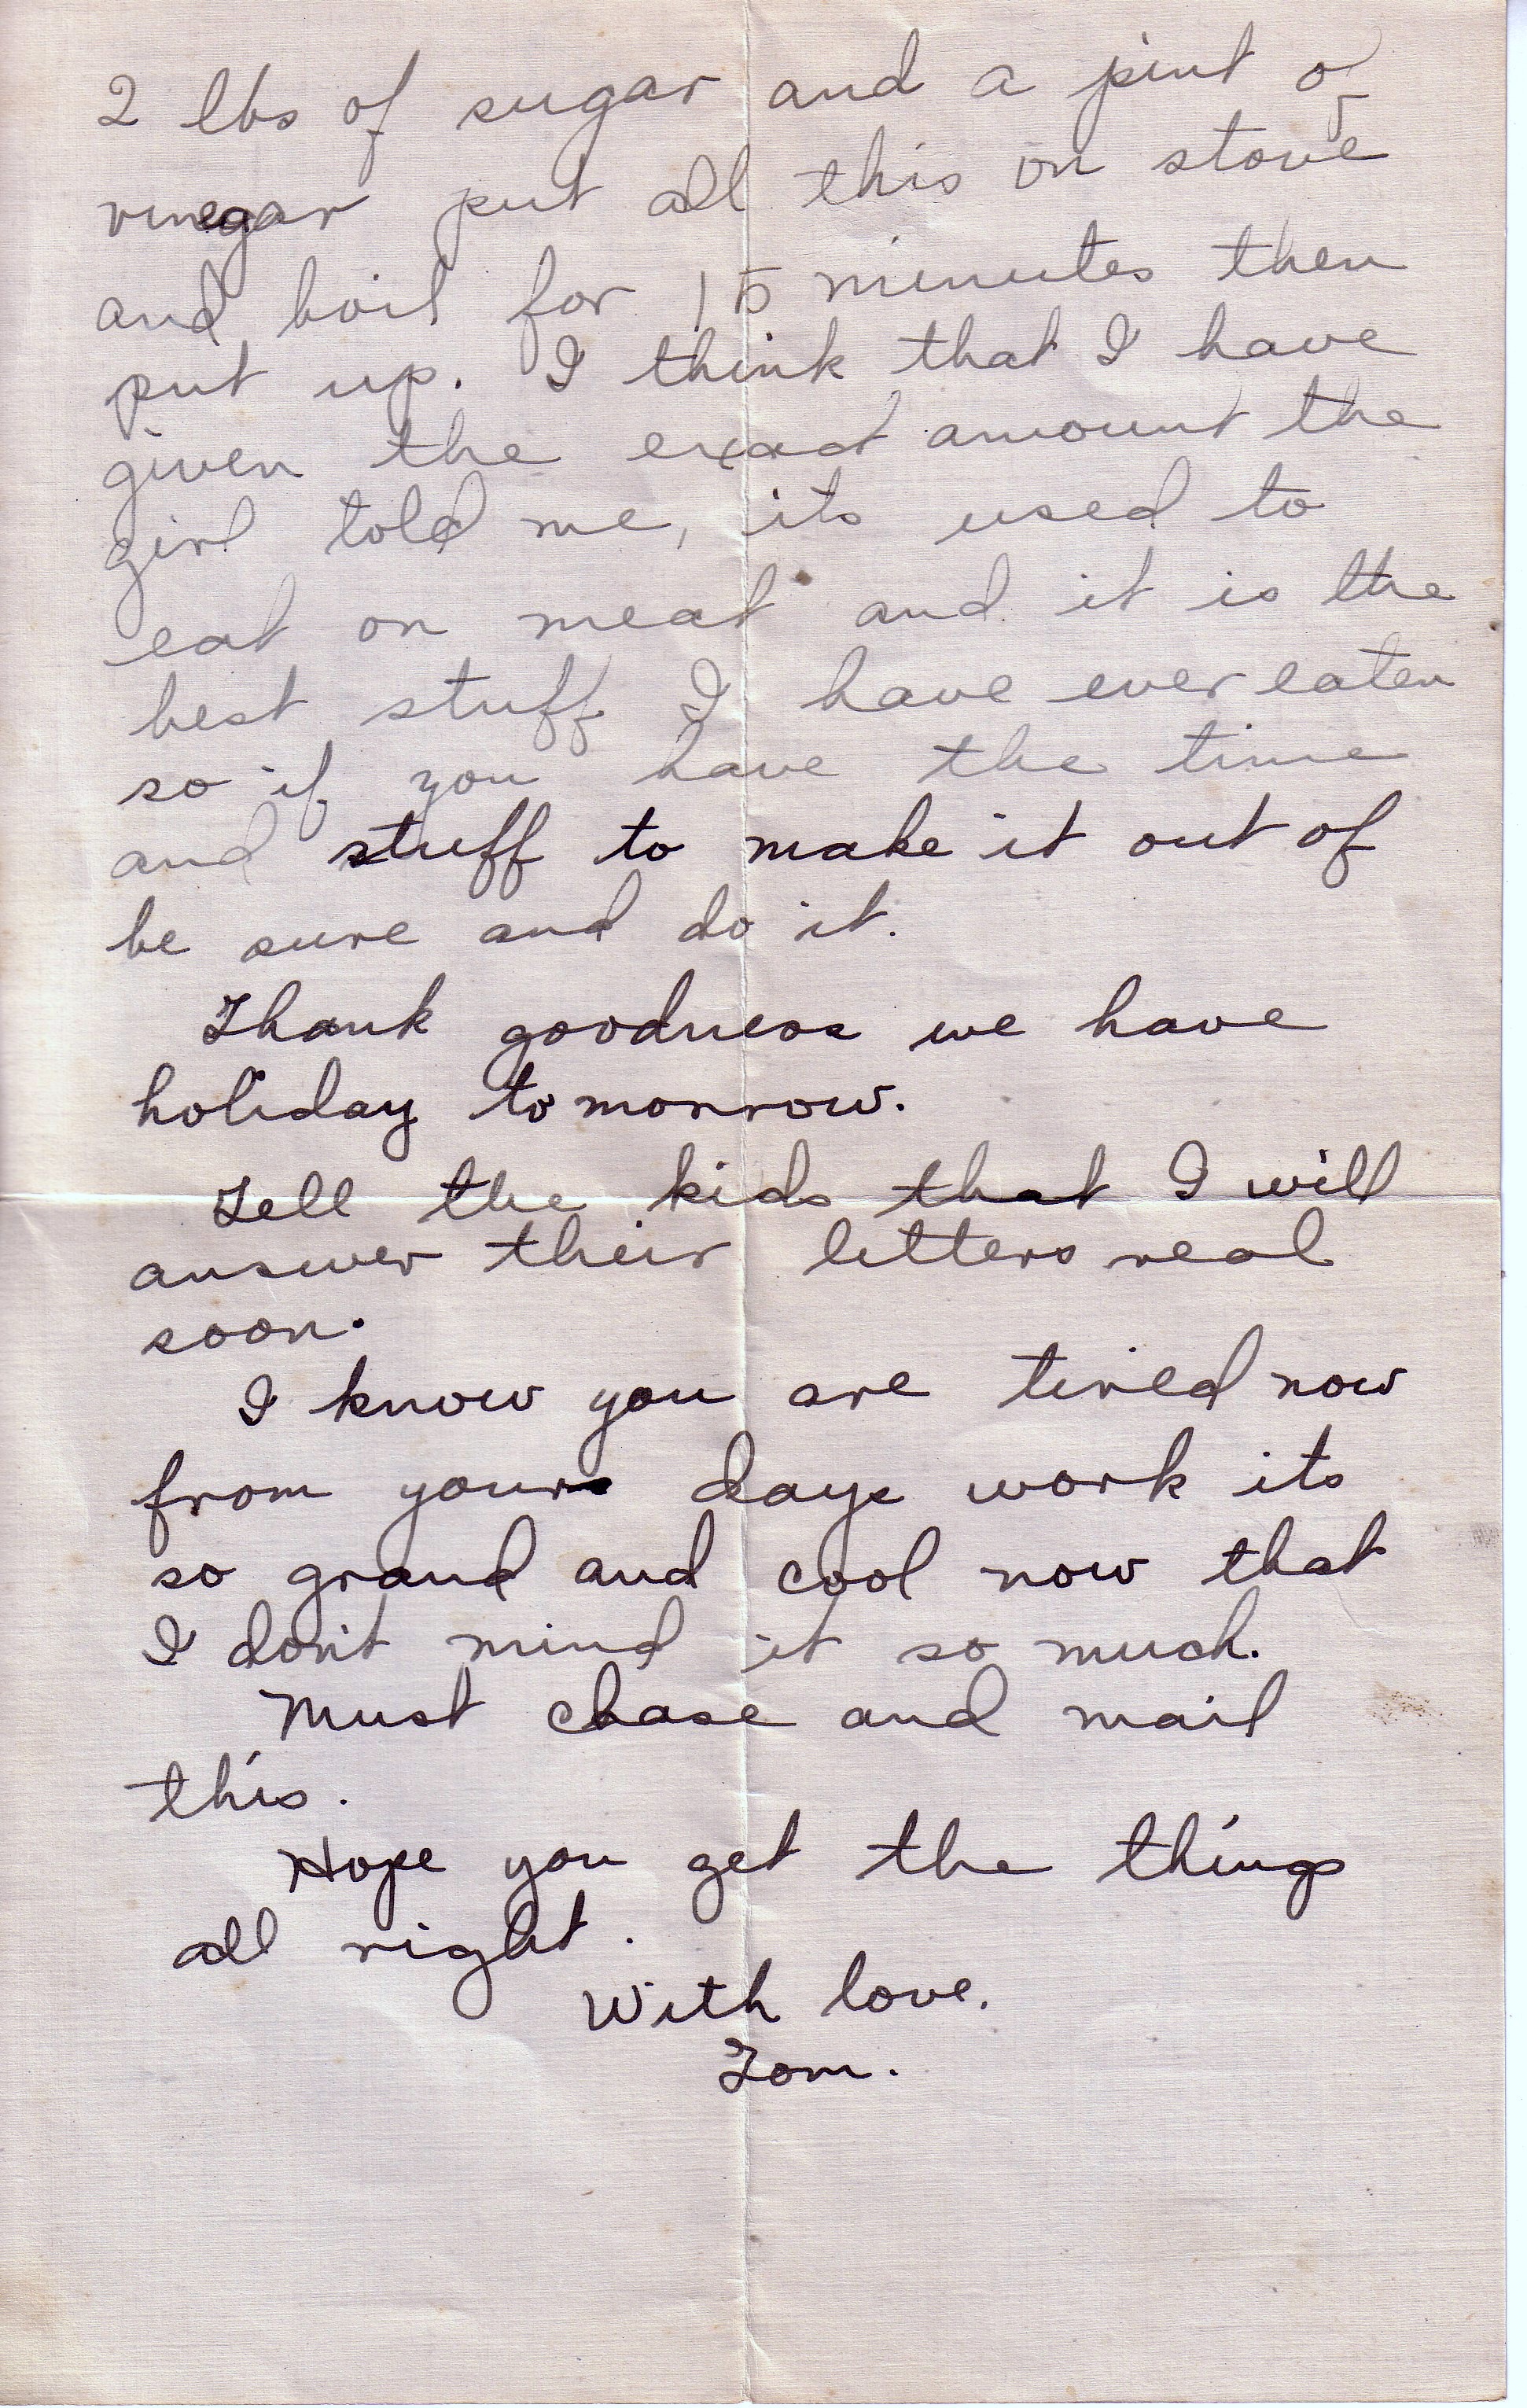 2 lbs of sugar and a pint of
vinegar put all this on stove
and boil for 15 minutes then
put up. I think that I have
given the exact amount the
girl told me, its used to
eat on meat and it is the
best stuff I have ever eaten
so if you have the time
and stuff to make it out of
be sure and do it.
Thank goodness we have
holiday tomorrow.
Tell the kids that I will
answer their letters real
soon.
I know you are tired now
from your days work its
so grand and cool now that
I don't mind it so much.
Must chase and mail
this.
Hope you get the things
all right.
With love.
Tom.